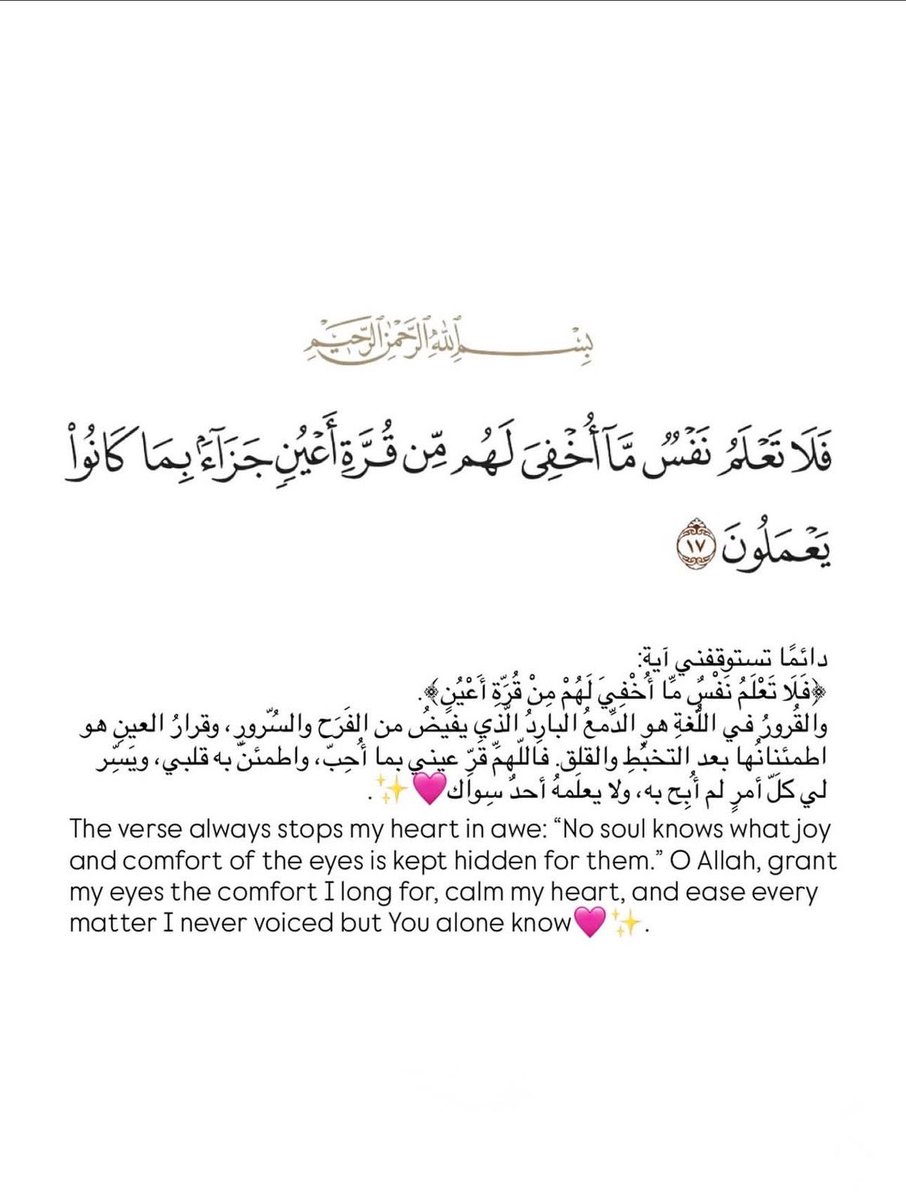 بِسْمِ ٱللَّهِ ٱلرَّحْمَٰنِ ٱلرَّحِيمِ
فَلَا تَعْلَمُ نَفْسٌ مَّآ أُخْفِىَ لَهُم مِّن قُرَّةِ أَعْيُنٍ جَزَآءًۢ بِمَا كَانُوا۟
يَعْمَلُونَ ١٧
دائمًا تستوقفني آية:
﴿فَلَا تَعْلَمُ نَفْسٌ مَّا أُخْفِيَ لَهُمْ مِنْ قُرَّةِ أَعْيُنٍ﴾.
والقُرورُ في اللُّغةِ هو الدَّمعُ البارِدُ الَّذي يفيضُ من الفَرَح والسُّرورِ، وقرارُ العينِ هو
اطمئنانُها بعد التخبُّطِ والقلق. فاللّهمَّ قَرِّ عيني بما أُحِبّ، واطمئنّ به قلبي، ويَسِّر
لي كلّ أمرٍ لم أُبِح به، ولا يعلَمهُ أحدٌ سِواك🩷✨.
The verse always stops my heart in awe: “No soul knows what joy
and comfort of the eyes is kept hidden for them.” O Allah, grant
my eyes the comfort I long for, calm my heart, and ease every
matter I never voiced but You alone know🩷✨.